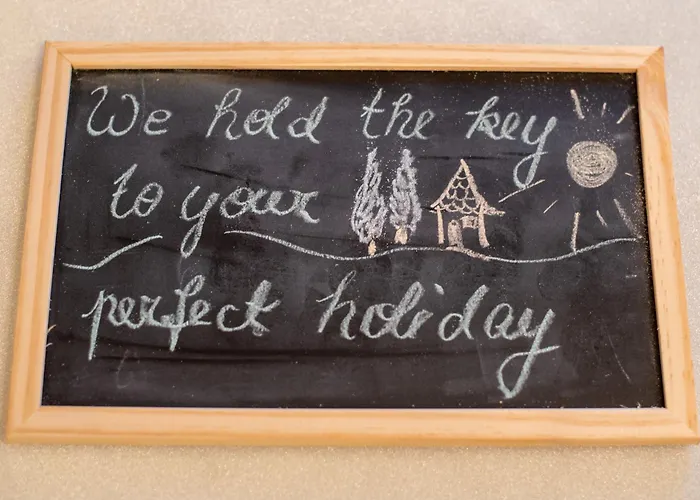 We hold the key
to your
perfect holiday